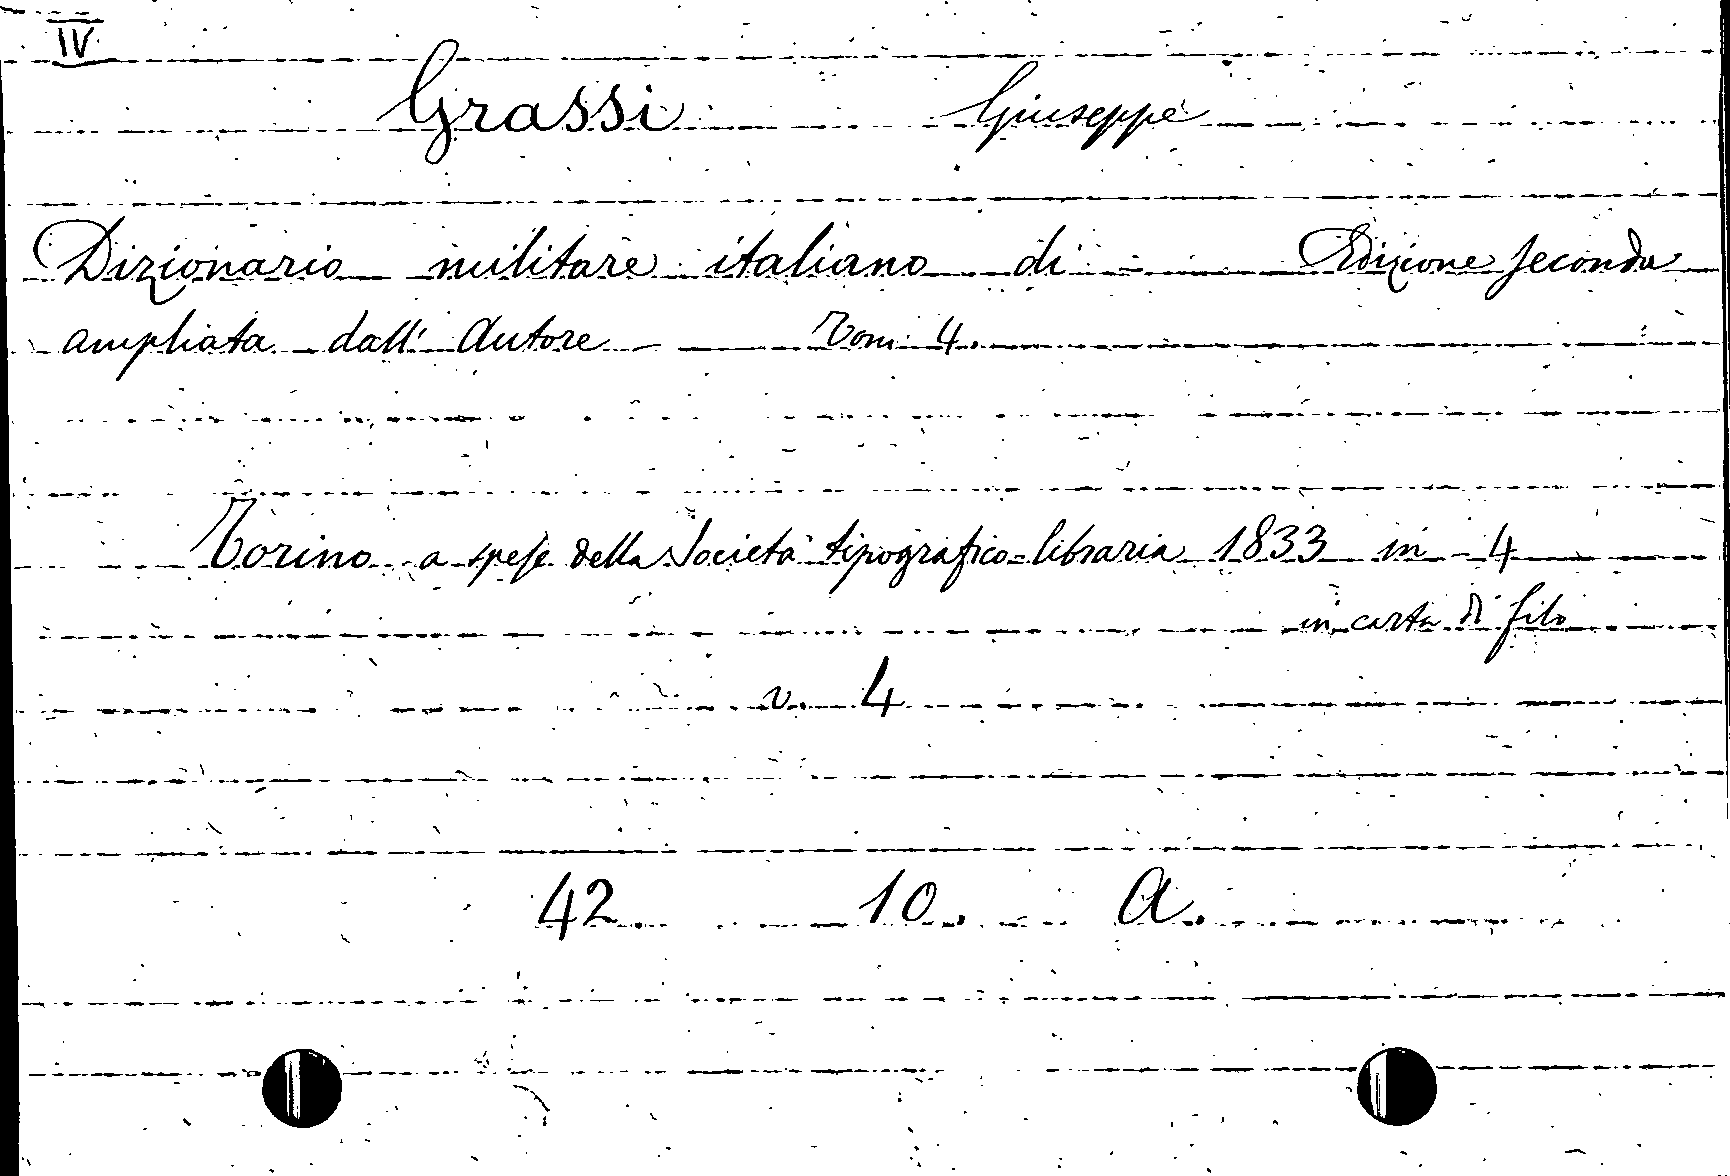 IV
Grassi Giuseppe
Dizionario militare italiano di - Edizione seconda
ampliata dall' Autore - Tomi 4.
Torino a spese della Società tipografico=libraria 1833 in 4
in carta di filo
v. 4
42. 10. A.